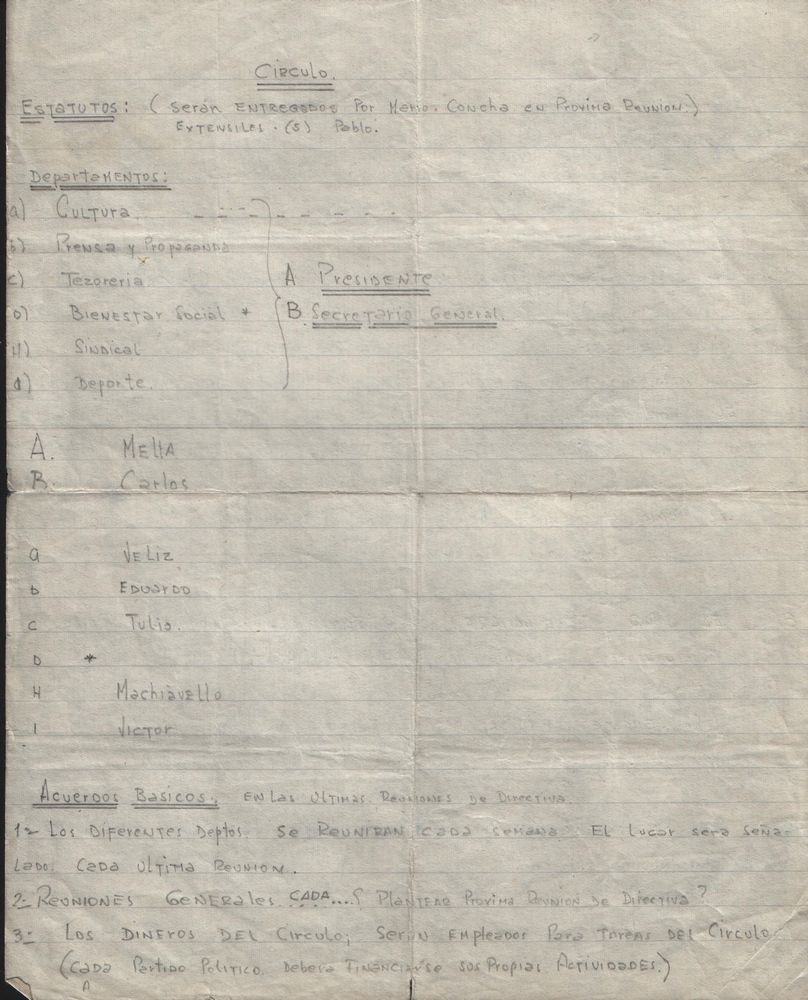 Circulo.
Estatutos: (Serán entregados por Mario Concha en Provima Reunion.)
Extensiles. (5) Pablo.
Departamentos:
a) Cultura
b) Prensa y Propaganda
c) Tezoreria
A Presidente
D) Bienestar Social *
B Secretario General.
H) Sindical
Deporte.
A. Mella
B. Carlos
a Veliz
b Eduardo
c Tulio.
D *
H Machiavello
I Victor
Acuerdos Basicos. En las ultimas Reuniones de Directiva.
1- Los Diferentes Deptos. se Reuniran cada semana. El lugar sera seña-
lado. Cada ultima Reunion.
2- Reuniones Generales. CADA....? Plantear Provima Reunion de Directiva?
3- Los Dineros del Circulo; Serán empleados para tareas del Circulo
(Cada Partido Politico. Debera Financiarse sus Propias Actividades.)
A